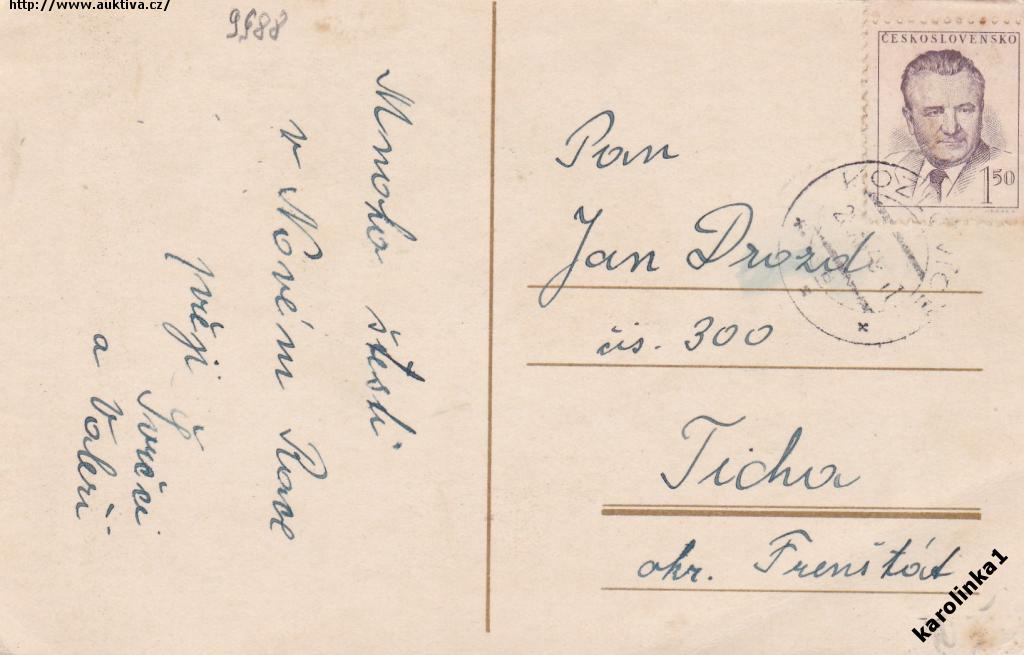 http://www.auktiva.cz/
9588
Mnoho štěstí
v Novém Roce
přejí
Švrčci
a Valeri
ČESKOSLOVENSKO
1 50
Pan
Jan Drozd
čis. 300
Tichá
okr. Frenštát
karolinka1